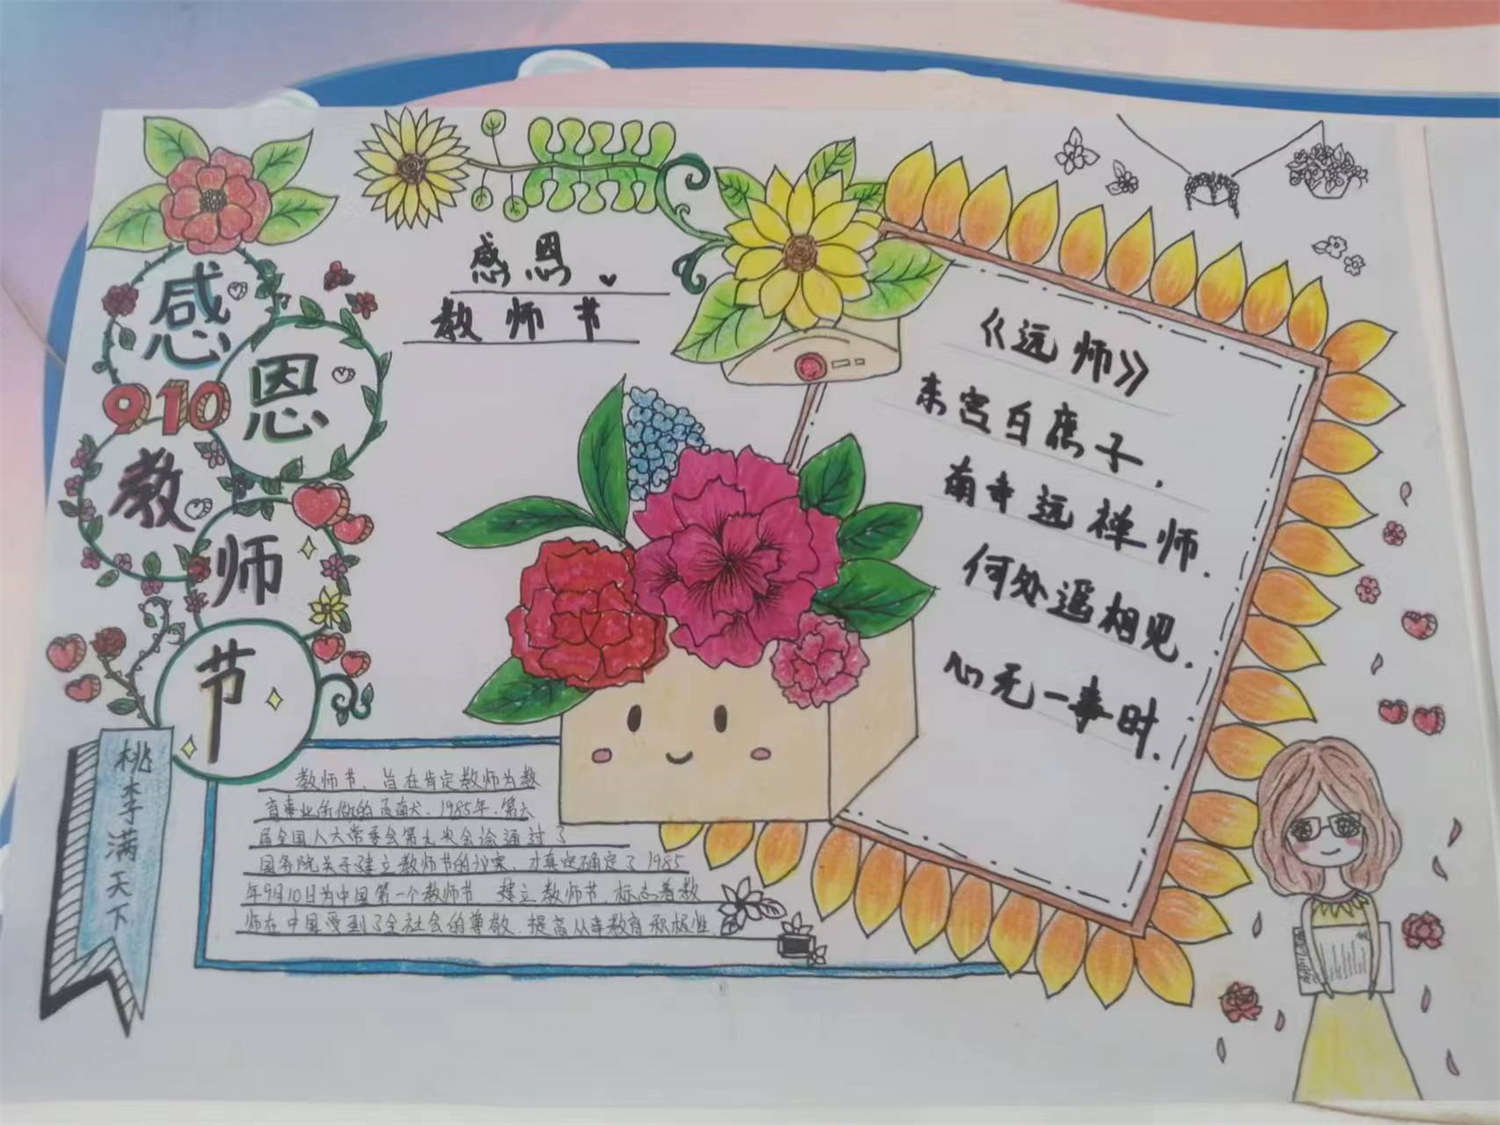 感恩
910
教师节
桃李满天下
感恩
教师节
《远师》
东宫白庶子，
南寺远禅师.
何处遥相见.
心无一事时.
教师节，旨在肯定教师为教
育事业所做的贡献. 1985年，第六
届全国人大常委会第九次会议通过了
国务院关于建立教师节的议案，才真正确定了1985
年9月10日为中国第一个教师节 建立教师节，标志着教
师在中国受到了全社会的尊敬. 提高从事教育积极性